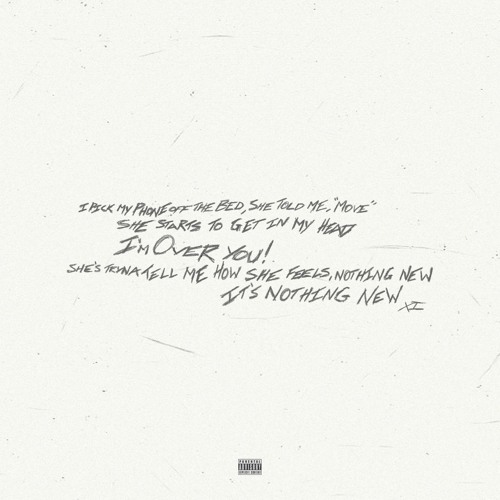 I PICK MY PHONE OFF THE BED, SHE TOLD ME, "MOVE"
SHE STARTS TO GET IN MY HEAD
I'M OVER YOU!
SHE'S TRYNA TELL ME HOW SHE FEELS, NOTHING NEW
IT'S NOTHING NEW
XI
PARENTAL
ADVISORY
EXPLICIT CONTENT